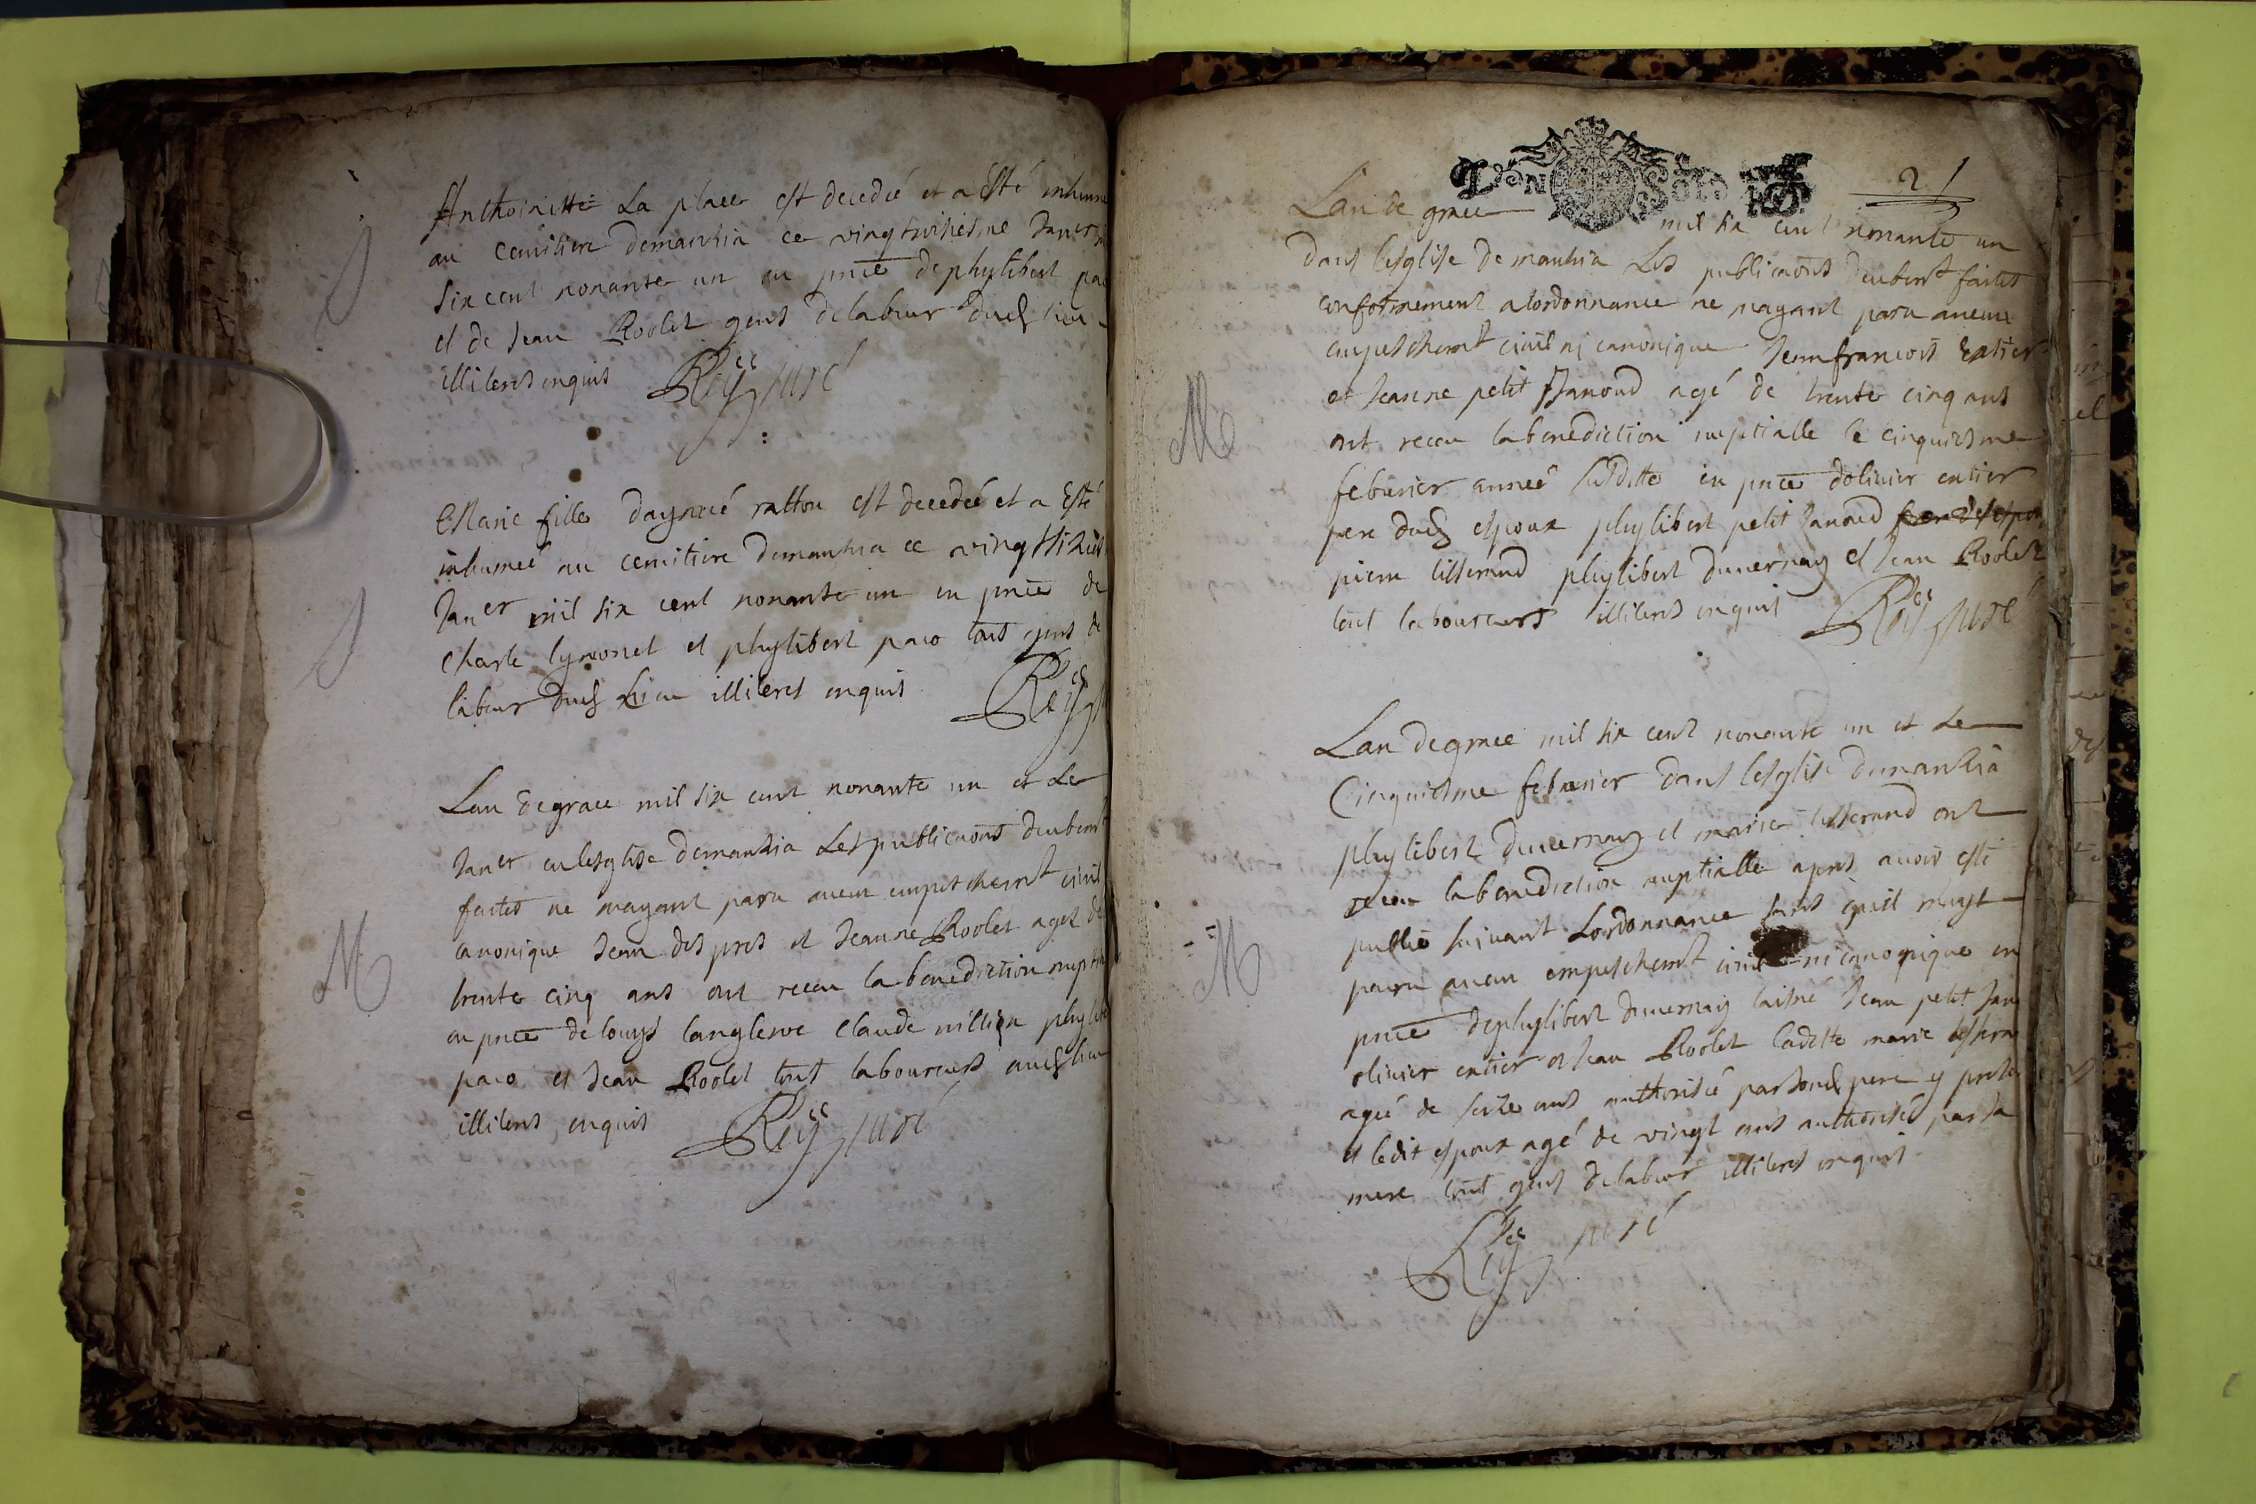 Anthoinette La place est decedeé et a Esté inhumé
au cemitiere demantzia ce vingthuitiesme Janer
six cent nonante un en pnce dephylibert paco
et de Jean Roolet gens delabeur dud lieu
illiteres enquis Rey curé
Marie fille daymé ratton est decedeé et a Esté
inhumeé au cemitiere demantzia ce vingt
Janer mil six cent nonante un en pnce de
charle lymonet et phylibert paco tous gens de
labeur dud Lieu illiteres enquis Rey
Lan de grace mil six cent nonante un et Le
Janer en lesglise demantzia Les publicaons deubemt
faites ne mayant paru aucun empeschemt civil
canonique Jean des pres et Jeanne Roolet ages de
trente cinq ans ont receu la benediction nuptialle
en pnce de louys claude million phylibert
paco et Jean Roolet tous laboureurs dud lieu
illiteres enquis Rey curé
M
2
Lan de grace mil six cent nonante un
dans lesglise de mantzia Les publicaons deubemt faites
conformement a lordonnance ne mayant paru aucun
empeschemt civil ni canonique Jeanfrancois Entier
et Jeanne petit Janoud agé de trente cinq ans
ont receu la benediction nuptialle le cinquiesme
febvrier anneé susditte en pnce dolivier entier
pere dud espoux phylibert petit Janoud
pierre tisserand phylibert duvernay et Jean Roolet
tous laboureurs illiteres enquis Rey curé
M
Lan de grace mil six cent nonante un et Le
Cinquiesme febvrier dans lesglise demantzia
phylibert duvernay et marie tisserand ont
receu la benediction nuptialle apres avoir esté
publié suivant Lordonnance sans quil mayt
paru aucun empeschemt civil ni canonique en
pnce dephylibert duvernay laisné Jean petit Jan
olivier entier et Jean Roolet laditte marie
ageé de seize ans authoriseé par sond pere y
et ledit espoux agé de vingt ans authorisé par sa
mere tous gens delabeur illiteres enquis
Rey curé
M